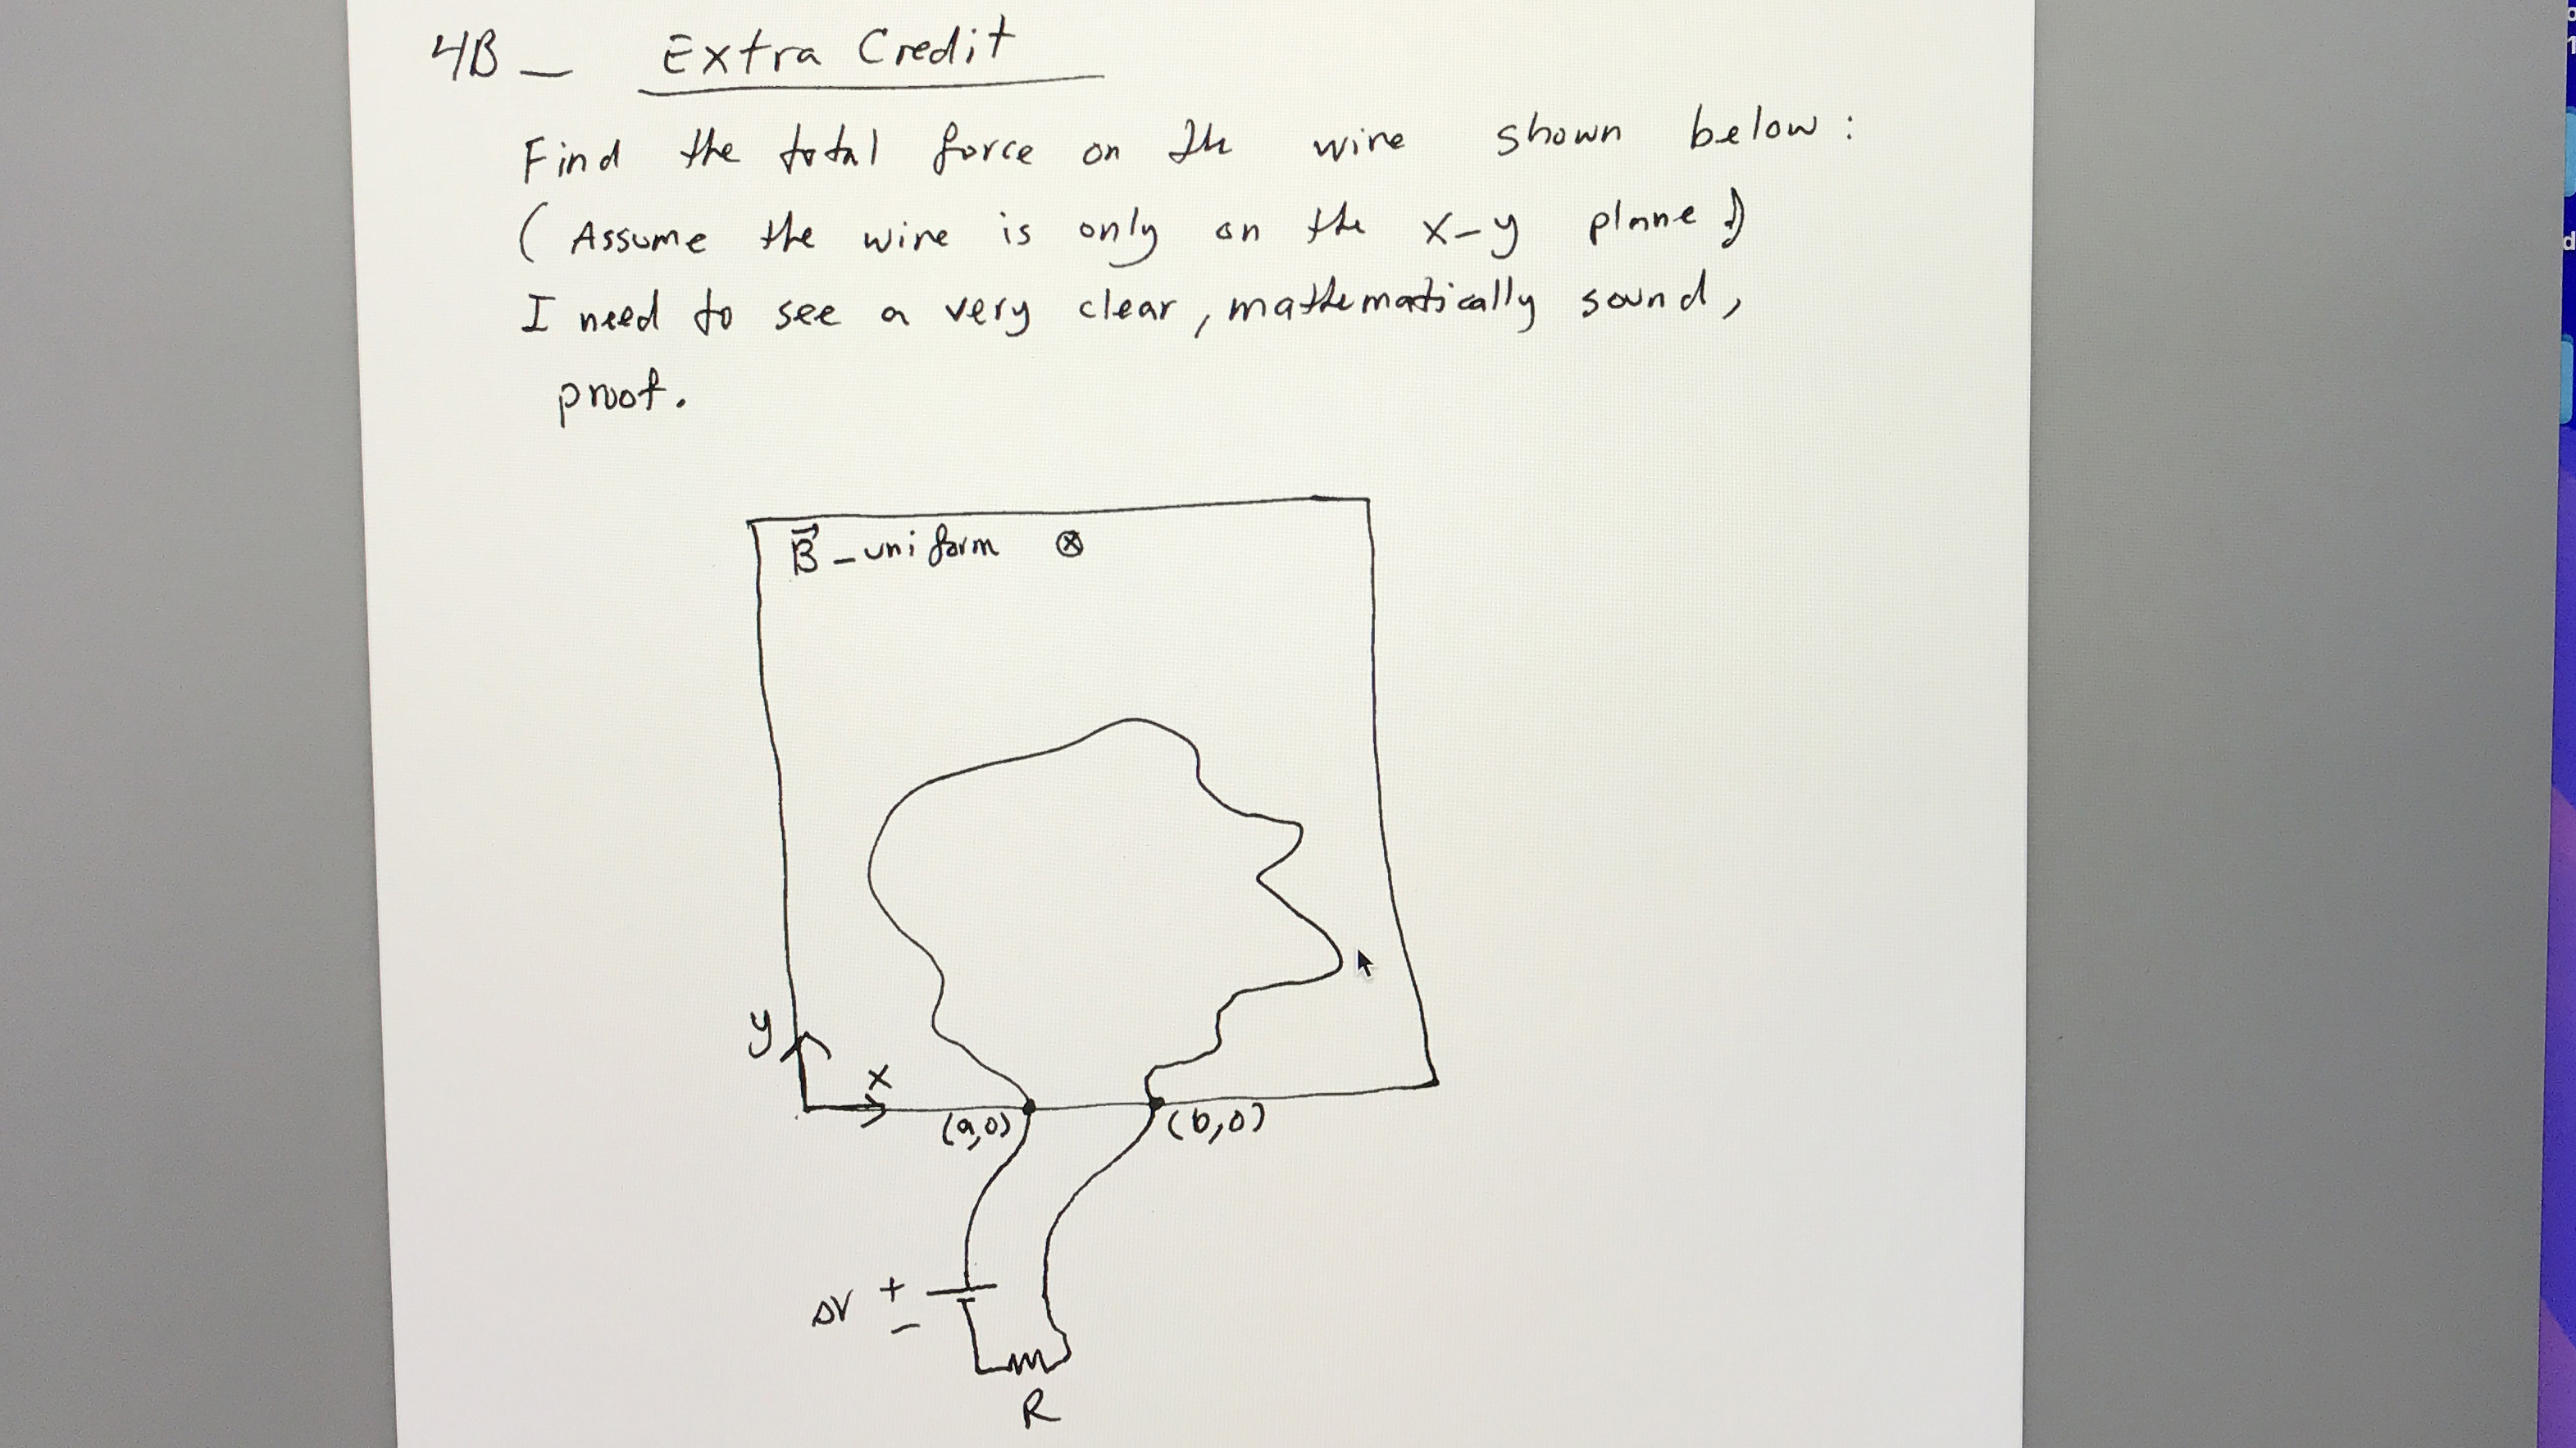 4B — Extra Credit
Find the total force on the wire shown below:
(Assume the wire is only on the x-y plane)
I need to see a very clear, mathematically sound,
proof.
B⃗ - uniform ⊗
y
x
(a,0)
(b,0)
ΔV + −
R